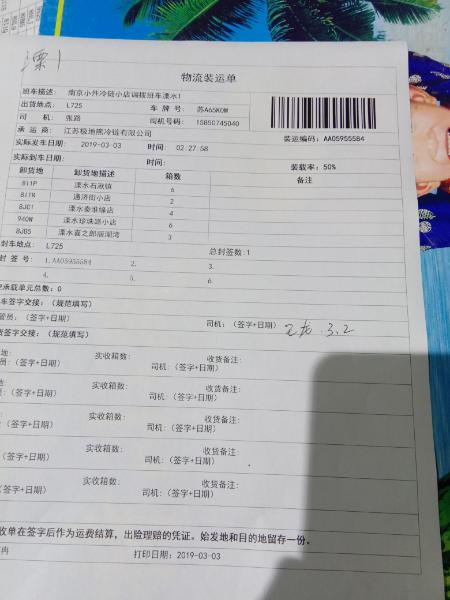 溧1
物流装运单
班车描述: 南京小件冷链小店调拨班车溧水1
出货地点: L725 车 牌 号: 苏A65K0W
司 机: 张路 司机号码: 15850745040
承 运 商: 江苏极地熊冷链有限公司 装运编码: AA05955584
实际发车日期: 2019-03-03 时间: 02:27:58
实际到车日期: 时间: 装载率: 50%
卸货地 卸货地描述 箱数 备注
811P 溧水石湫镇 6
通济街小店 2
8J01 溧水秦淮缘店 4
940W 溧水珍珠路小店 6
8J05 溧水喜之郎丽湖湾 3
封车地点: L725 总封签数:1
封 签 号: 1.AA05955584 2. 3.
4. 5. 6.
承载单元总数: 0
车签字交接: (规范填写)
管员: (签字+日期) 司机: (签字+日期) 3.2
货签字交接: (规范填写)
地: 实收箱数: 收货备注:
员: (签字+日期) 司机: (签字+日期)
地: 实收箱数: 收货备注:
(签字+日期) 司机: (签字+日期)
实收箱数: 收货备注:
(签字+日期) 司机: (签字+日期)
实收箱数: 收货备注:
(签字+日期) 司机: (签字+日期)
实收箱数: 收货备注:
(签字+日期) 司机: (签字+日期)
收单在签字后作为运费结算，出险理赔的凭证。始发地和目的地留存一份。
冉 打印日期: 2019-03-03